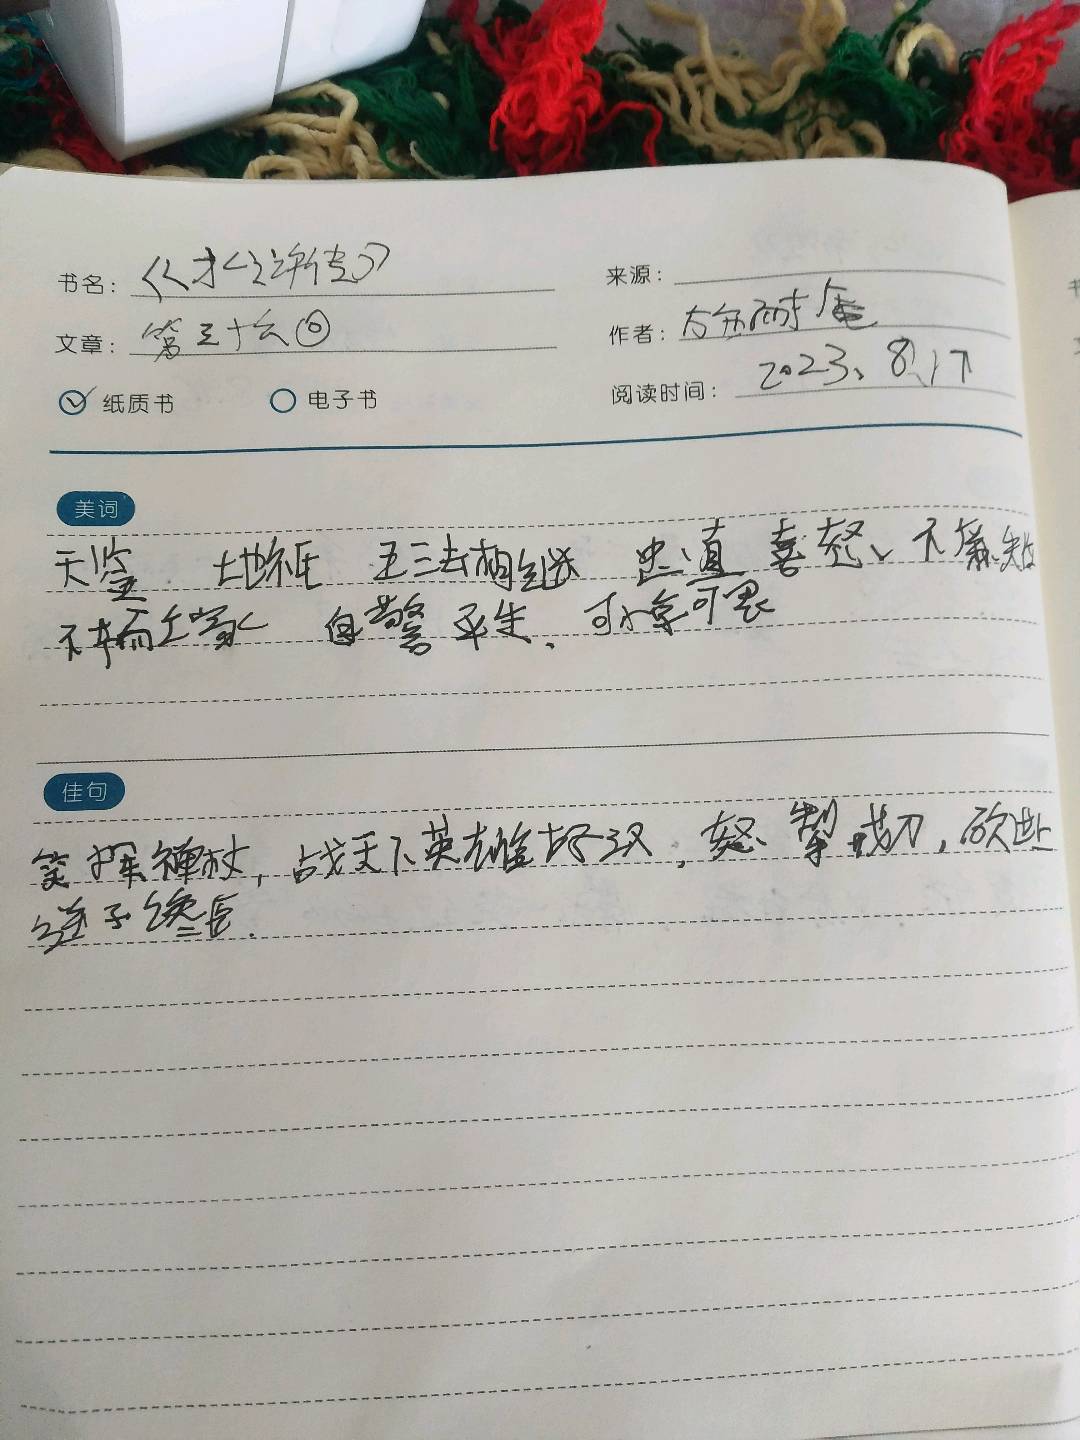 书名：《水浒传》 来源：
文章：第三十六回 作者：施耐庵
纸质书 电子书 阅读时间：2023、8、17
美词
天鉴 地祇 王法相继 忠直 喜怒、不廉失
不节而亡家 自警平生、可畏
佳句
笑挥禅杖，战天下英雄好汉，怒掣戒刀，砍世上
逆子谗臣.